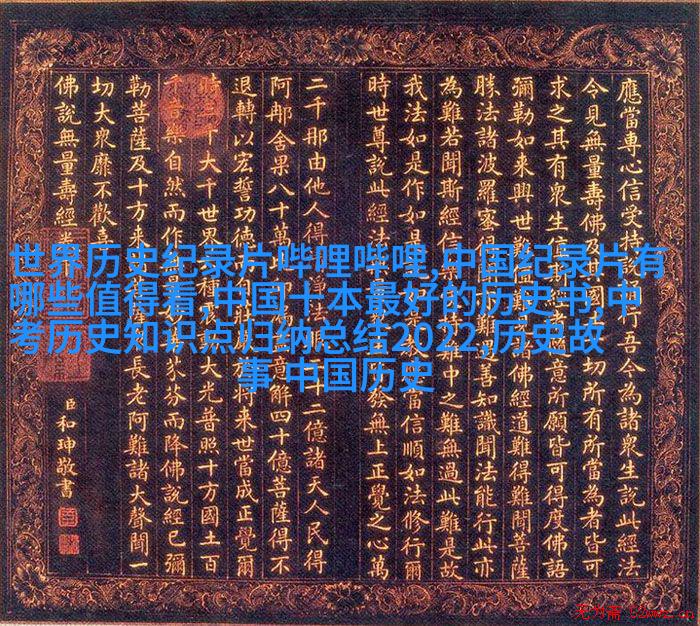 應當專心信受持誦行吾今為諸衆生說此經法
今見無量壽佛及其國土一切所有所當為者皆可
求之其有衆生值斯經者隨意所願皆可得度佛語
彌勒如來興世難值難見諸佛經道難得難聞菩薩
勝法諸波羅蜜得聞亦難遇善知識聞法能行此亦
為難若聞斯經信樂受持難中之難無過此難是故
我法如是作如是說如是教應當信順如法修行爾
時世尊說此經法無量衆生皆發無上正覺之心萬
二千那由他人得清淨法眼二十二億諸天人民得
阿那舍果八十萬比丘漏盡意解四十億菩薩得不
退轉以宏誓功德而自莊嚴於將來世當成正覺爾
時三千大千世界六種震動大光普照十方國土百
千音樂自然而作無量妙華芬芬而降佛說經已彌
勒菩薩及十方來諸菩薩衆長老阿難諸大聲聞一
切大衆靡不歡喜
佛說無量壽經卷下
臣和珅敬書
世界历史纪录片哔哩哔哩,中国纪录片有
哪些值得看,中国十本最好的历史书,中
考历史知识点归纳总结2022,历史故
事 中国历史
无为斋 52wwz.cn